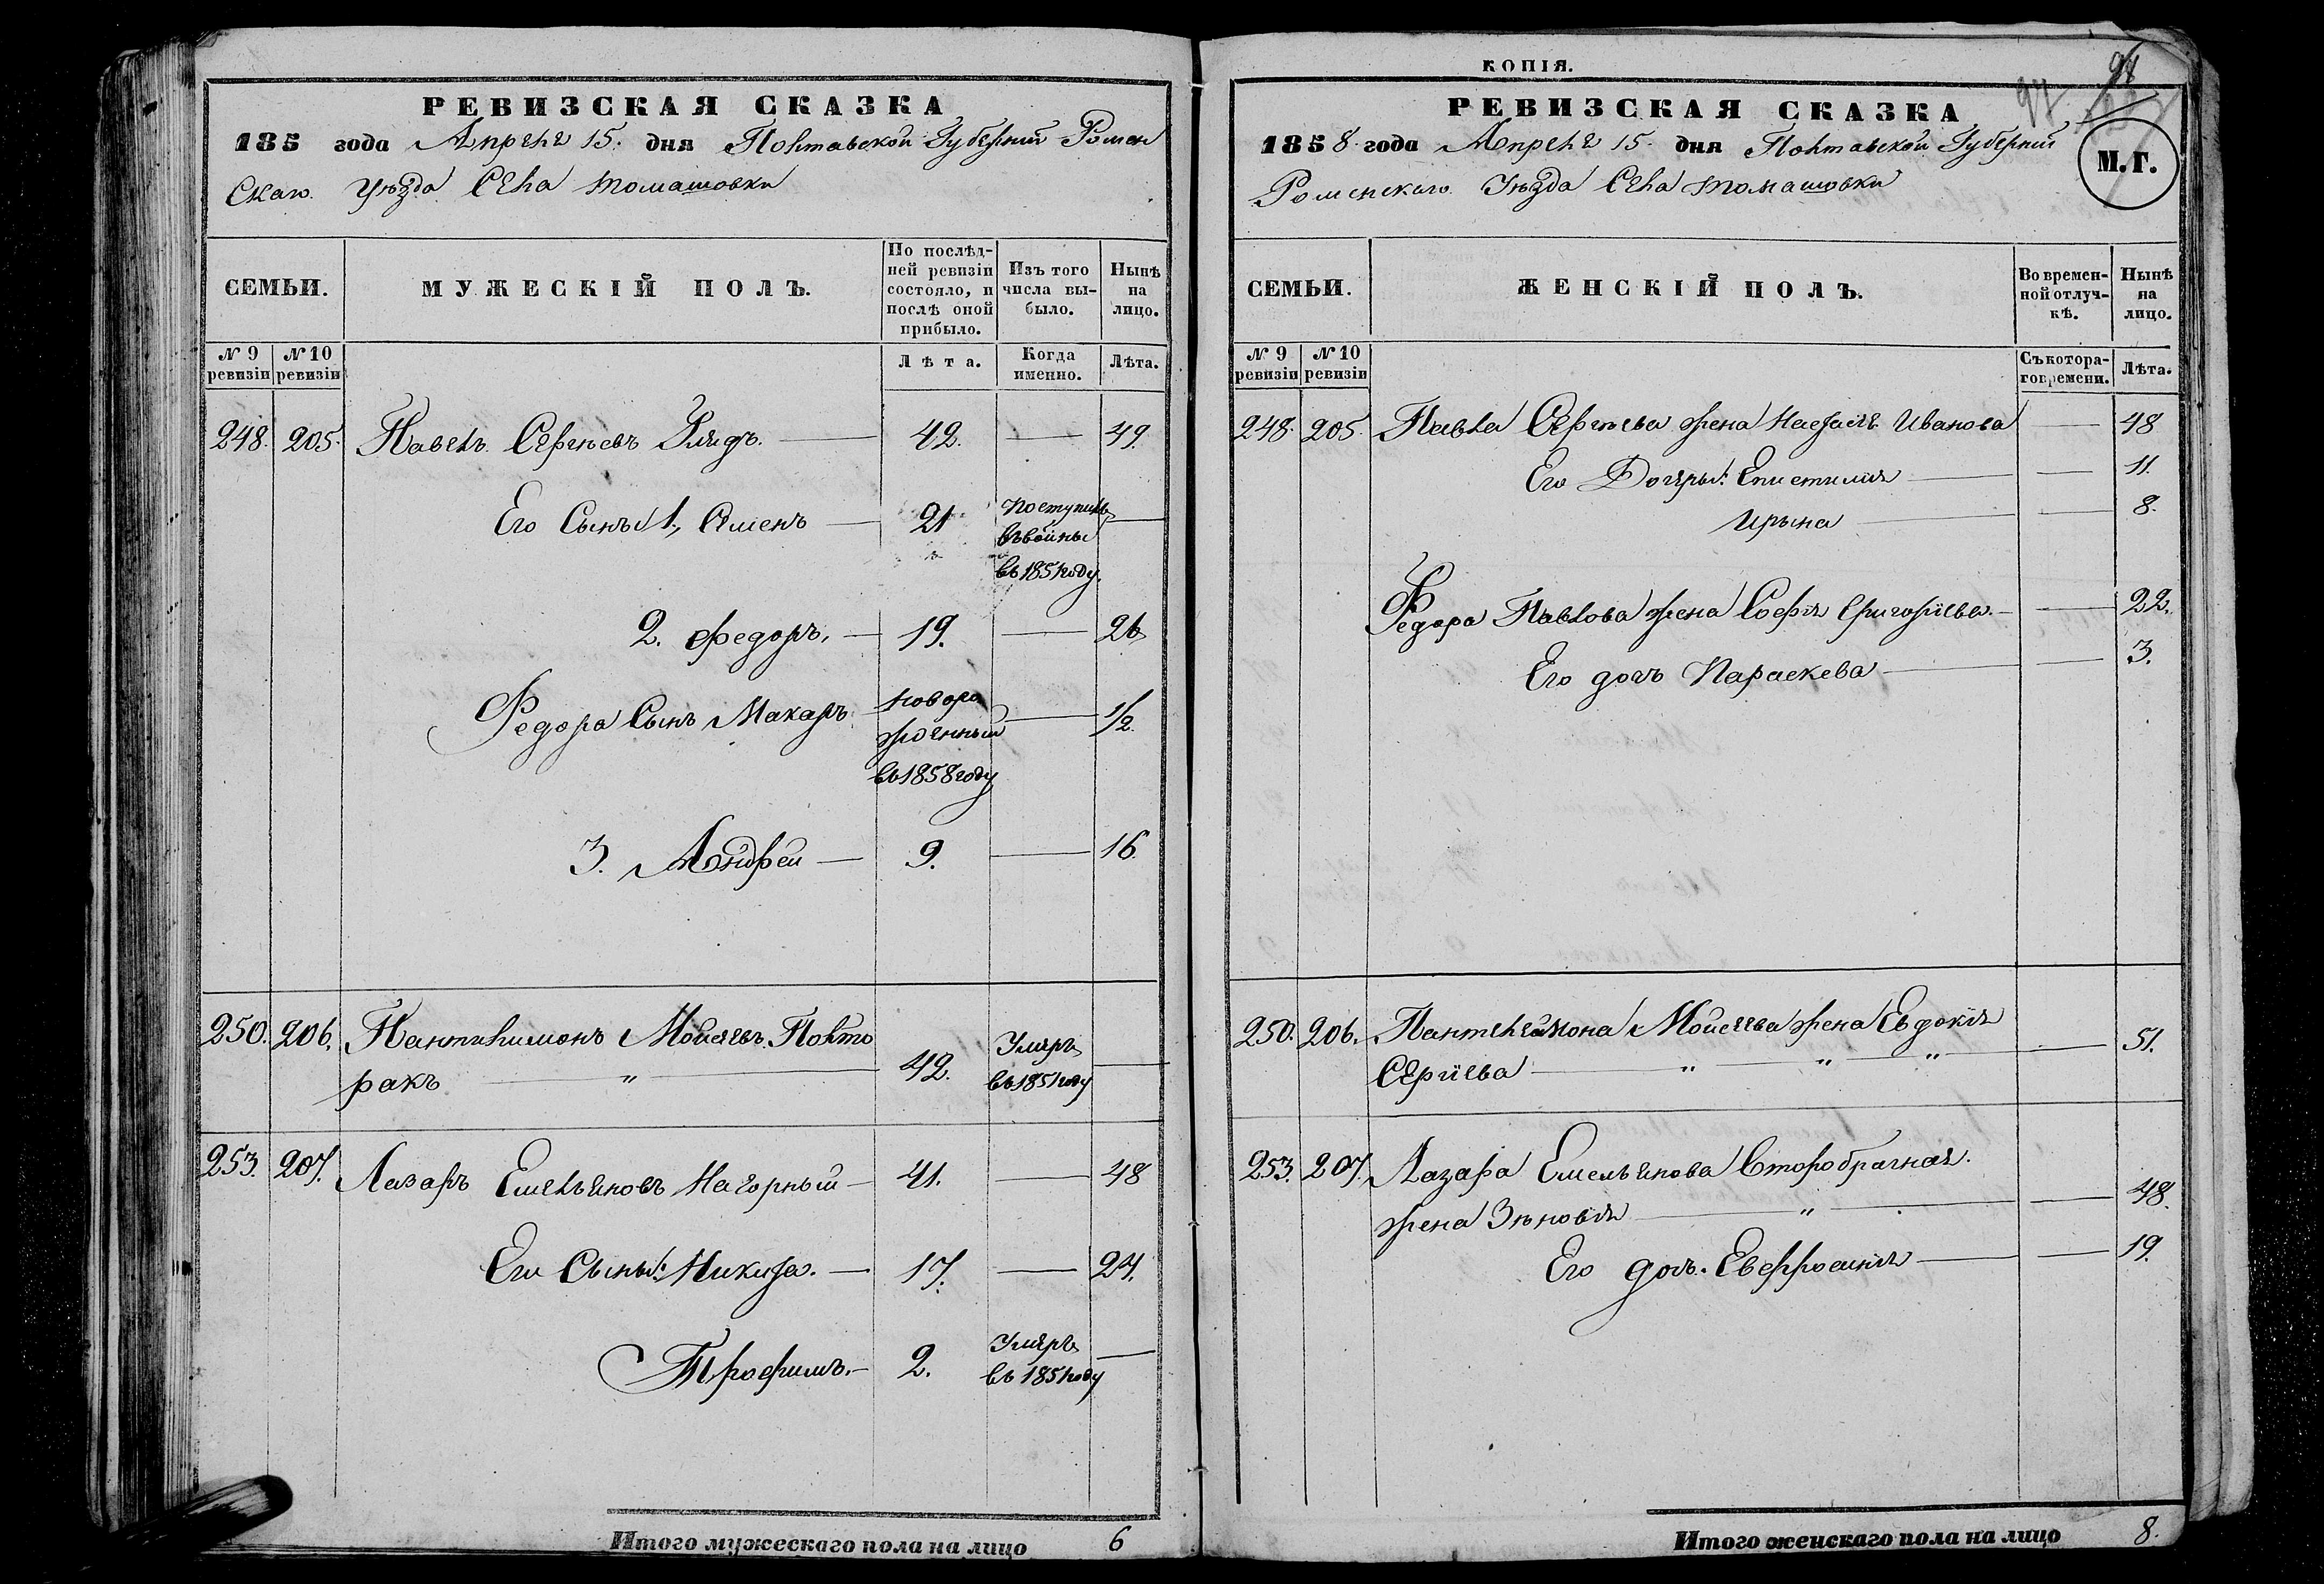 РЕВИЗСКАЯ СКАЗКА
185 года Апреля 15. дня Полтавской Губерний Ромен
скаго. Уѣзда Села Томашовки
СЕМЬИ.
МУЖЕСКІЙ ПОЛЪ.
По послѣд-
ней ревизіи
состояло, и
послѣ оной
прибыло.
Изъ того
числа вы-
было.
Нынѣ
на
лицо.
№ 9
ревизіи
№ 10
ревизіи
Лѣта.
Когда
именно.
Лѣта.
248. 205. Павелъ Сергѣевъ 42. — 49.
Его Сыны 1, Семенъ — 21 Поступилъ —
въ 1851 году.
2. Федоръ, — 19. — 26
Федора Сынъ Макаръ Новоро — 1/2.
жденный
въ 1858 году
3. Андрей — 9. — 16.
250. 206. Пантилимонъ Мойсеевъ Полто
ракъ — " — 42. Умеръ —
въ 1851 году
253. 207. Лазаръ Емельяновъ Нагорный — 41. — 48
Его Сыны: Никита. — 17. — 24.
Трофимъ. — 2. Умеръ —
въ 1851 году
Итого мужескаго пола на лицо 6
КОПІЯ.
94
97
РЕВИЗСКАЯ СКАЗКА
1858 года Апреля 15. дня Полтавской Губерний
Роменскаго. Уѣзда Села Томашовки
М.Г.
СЕМЬИ.
ЖЕНСКІЙ ПОЛЪ.
Во времен-
ной отлуч-
кѣ.
Нынѣ
на
лицо.
№ 9
ревизіи
№ 10
ревизіи
Съ котора-
го времени.
Лѣта.
248. 205. Павла Сергѣева жена Настасія Иванова — 48
Его Дочеры: Епистимія — 11.
Ирына — 8.
Федора Павлова жена Софія Григоріева. — 22.
Его дочь Параскева — 3.
250. 206. Пантелеймона Мойсеева жена Евдокія
Сергіева — " — " — " — 51.
253. 207. Лазара Емельянова Второбрачная.
жена Зѣновія — " — 48.
Его дочь. Евфросинія — 19.
Итого женскаго пола на лицо 8.